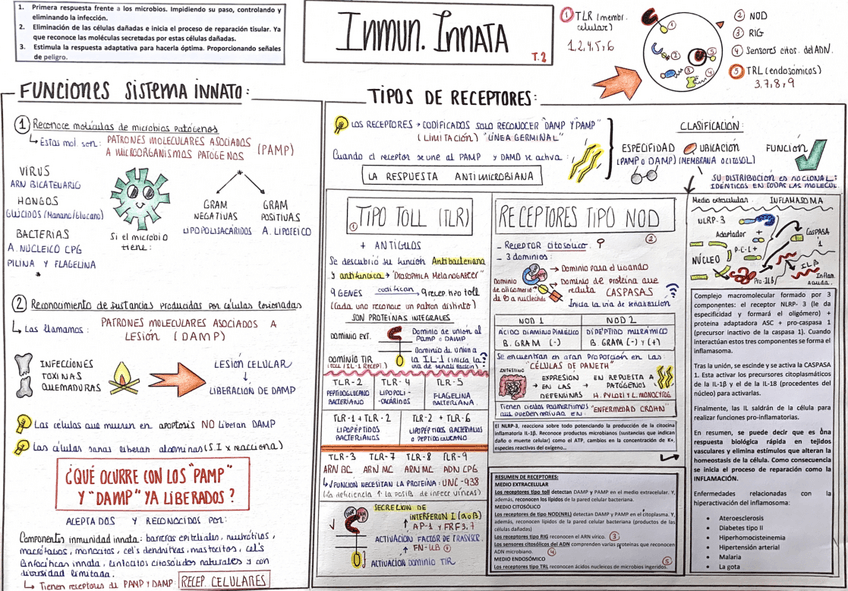 1. Primera respuesta frente a los microbios. Impidiendo su paso, controlando y
eliminando la infección.
2. Eliminación de las células dañadas e inicia el proceso de reparación tisular. Ya
que reconoce las moléculas secretadas por estas células dañadas.
3. Estimula la respuesta adaptativa para hacerla óptima. Proporcionando señales
de peligro.
INMUN. INNATA
T.2
① TLR (membr.
celular)
1,2,4,5,6
② NOD
③ RIG
④ Sensores citos. del ADN.
⑤ TRL (endosómicos)
3,7,8,9
FUNCIONES SISTEMA INNATO:
① Reconoce moléculas de microbios patógenos
↳ Estas mol. son: PATRONES MOLECULARES ASOCIADOS
A MICROORGANISMOS PATOGENOS (PAMP)
VIRUS
ARN BICATENARIO
HONGOS
GLUCIDOS (Manano/Glucano)
BACTERIAS
A. NUCLEICO CPG
PILINA Y FLAGELINA
Si el microbio
tiene:
GRAM
NEGATIVAS
LIPOPOLISACÁRIDOS
GRAM
POSITIVAS
A. LIPOTEICO
② Reconocimiento de sustancias producidas por células lesionadas
↳ Las llamamos: PATRONES MOLECULARES ASOCIADOS A
LESIÓN (DAMP)
INFECCIONES
TOXINAS
QUEMADURAS
LESIÓN CELULAR
↓
LIBERACIÓN DE DAMP
Las células que mueren en apoptosis NO liberan DAMP
Las células sanas liberan alarminas (S.I x reacciona)
¿QUÉ OCURRE CON LOS "PAMP"
Y "DAMP" YA LIBERADOS?
ACEPTADOS Y RECONOCIDOS POR:
Componentes inmunidad innata: barreras epiteliales, neutrófilos,
macrófagos, monocitos, cél's dendríticas, mastocitos, cél's
linfocíticas innata, linfocitos citosoles naturales y con
diversidad limitada.
↳ Tienen receptores de PAMP y DAMP RECEP. CELULARES
TIPOS DE RECEPTORES:
LOS RECEPTORES → CODIFICADOS SOLO RECONOCER "DAMP Y PAMP"
(LIMITACIÓN) "LÍNEA GERMINAL"
Cuando el receptor se une al PAMP y DAMP se activa:
LA RESPUESTA ANTIMICROBIANA
CLASIFICACIÓN:
ESPECIFIDAD
(PAMP o DAMP)
UBICACIÓN
(MEMBRANA O CITOSOL)
FUNCIÓN
SU DISTRIBUCIÓN ES NO CLONAL:
IDÉNTICOS EN TODAS LAS MOLECUL
① TIPO TOLL (TLR)
+ ANTIGUOS
Se descubrió su función Antibacteriana
y antifúngica → "DROSOPHILA MELANOGASTER"
9 GENES codifican → 9 recep. tipo toll
(cada uno reconoce un patrón distinto)
SON PROTEÍNAS INTEGRALES
DOMINIO EXT.
Dominio de unión al
PAMP o DAMP
DOMINIO TIR
TLR-2
PEPTIDOGLUCANO
BACTERIANO
TLR-4
LIPOPOLI-
SACÁRIDOS
TLR-5
FLAGELINA
BACTERIANA
TLR-1 + TLR-2
LIPOPÉPTIDOS
BACTERIANOS
TLR-2 + TLR-6
LIPOPÉPTIDOS BACTERIANOS
O PEPTIDOGLUCANO
TLR-3 TLR-7 TLR-8 TLR-9
ARN BC. ARN MC ARN MC ADN CPG
↳ FUNCIÓN NECESITAN LA PROTEÍNA: UNC-93B
SECRECIÓN DE
INTERFERÓN I (α o β)
↑ AP-1 y FRF3,7
ACTIVACIÓN FACTOR DE TRASCR.
ACTIVACIÓN DOMINIO TIR
RECEPTORES TIPO NOD
②
- Receptor citosólico
- 3 dominios:
→ Dominio para el ligando
→ Dominio de proteína que
recluta CASPASAS
Inicia la vía de señalización
NOD 1
ÁCIDO DIAMINO PIMÉLICO
B. GRAM (-)
NOD 2
DIPÉPTIDO MURÁMICO
B. GRAM (-) y (+)
Se encuentran en gran proporción en las
"CÉLULAS DE PANETH"
EXPRESIÓN
EN LAS
DEFENSINAS
EN RESPUESTA A
PATÓGENOS
H. PYLORI Y L. MONOCYTOG
"ENFERMEDAD CROHN"
El NLRP-3, reacciona sobre todo potenciando la producción de la citocina
inflamatoria IL-1β. Reconoce productos microbianos (sustancias que indican
daño o muerte celular) como el ATP, cambios en la concentración de K+,
especies reactivas del oxígeno...
RESUMEN DE RECEPTORES:
MEDIO EXTRACELULAR
Los receptores tipo toll detectan DAMP y PAMP en el medio extracelular. Y,
además, reconocen los lípidos de la pared celular bacteriana.
MEDIO CITOSÓLICO
Los receptores de tipo NOD(NRL) detectan DAMP y PAMP en el citoplasma. Y,
además, reconocen lípidos de la pared celular bacteriana (productos de las
células dañadas)
Los receptores tipo RIG reconocen al ARN vírico. ③
Los sensores citosólicos del ADN comprenden varias proteínas que reconocen
ADN microbiano. ④
MEDIO ENDOSÓMICO ⑤
Los receptores tipo TRL reconocen ácidos nucleicos de microbios ingeridos.
Medio extracelular. INFLAMASOMA
NLRP-3
Adaptador
P-C-1
CASPASA
1
NÚCLEO
Pro-ILβ
ILβ
Complejo macromolecular formado por 3
componentes: el receptor NLRP- 3 (le da
especificidad y formará el oligómero) +
proteína adaptadora ASC + pro-caspasa 1
(precursor inactivo de la caspasa 1). Cuando
interactúan estos tres componentes se forma el
inflamasoma.
Tras la unión, se escinde y se activa la CASPASA
1. Esta activar los precursores citoplasmáticos
de la IL-1β y el de la IL-18 (procedentes del
núcleo) para activarlas.
Finalmente, las IL saldrán de la célula para
realizar funciones pro-inflamatorias.
En resumen, se puede decir que es una
respuesta biológica rápida en tejidos
vasculares y elimina estímulos que alteran la
homeostasis de la célula. Como consecuencia
se inicia el proceso de reparación como la
INFLAMACIÓN.
Enfermedades relacionadas con la
hiperactivación del inflamasoma:
• Ateroesclerosis
• Diabetes tipo II
• Hiperhomocisteinemia
• Hipertensión arterial
• Malaria
• La gota